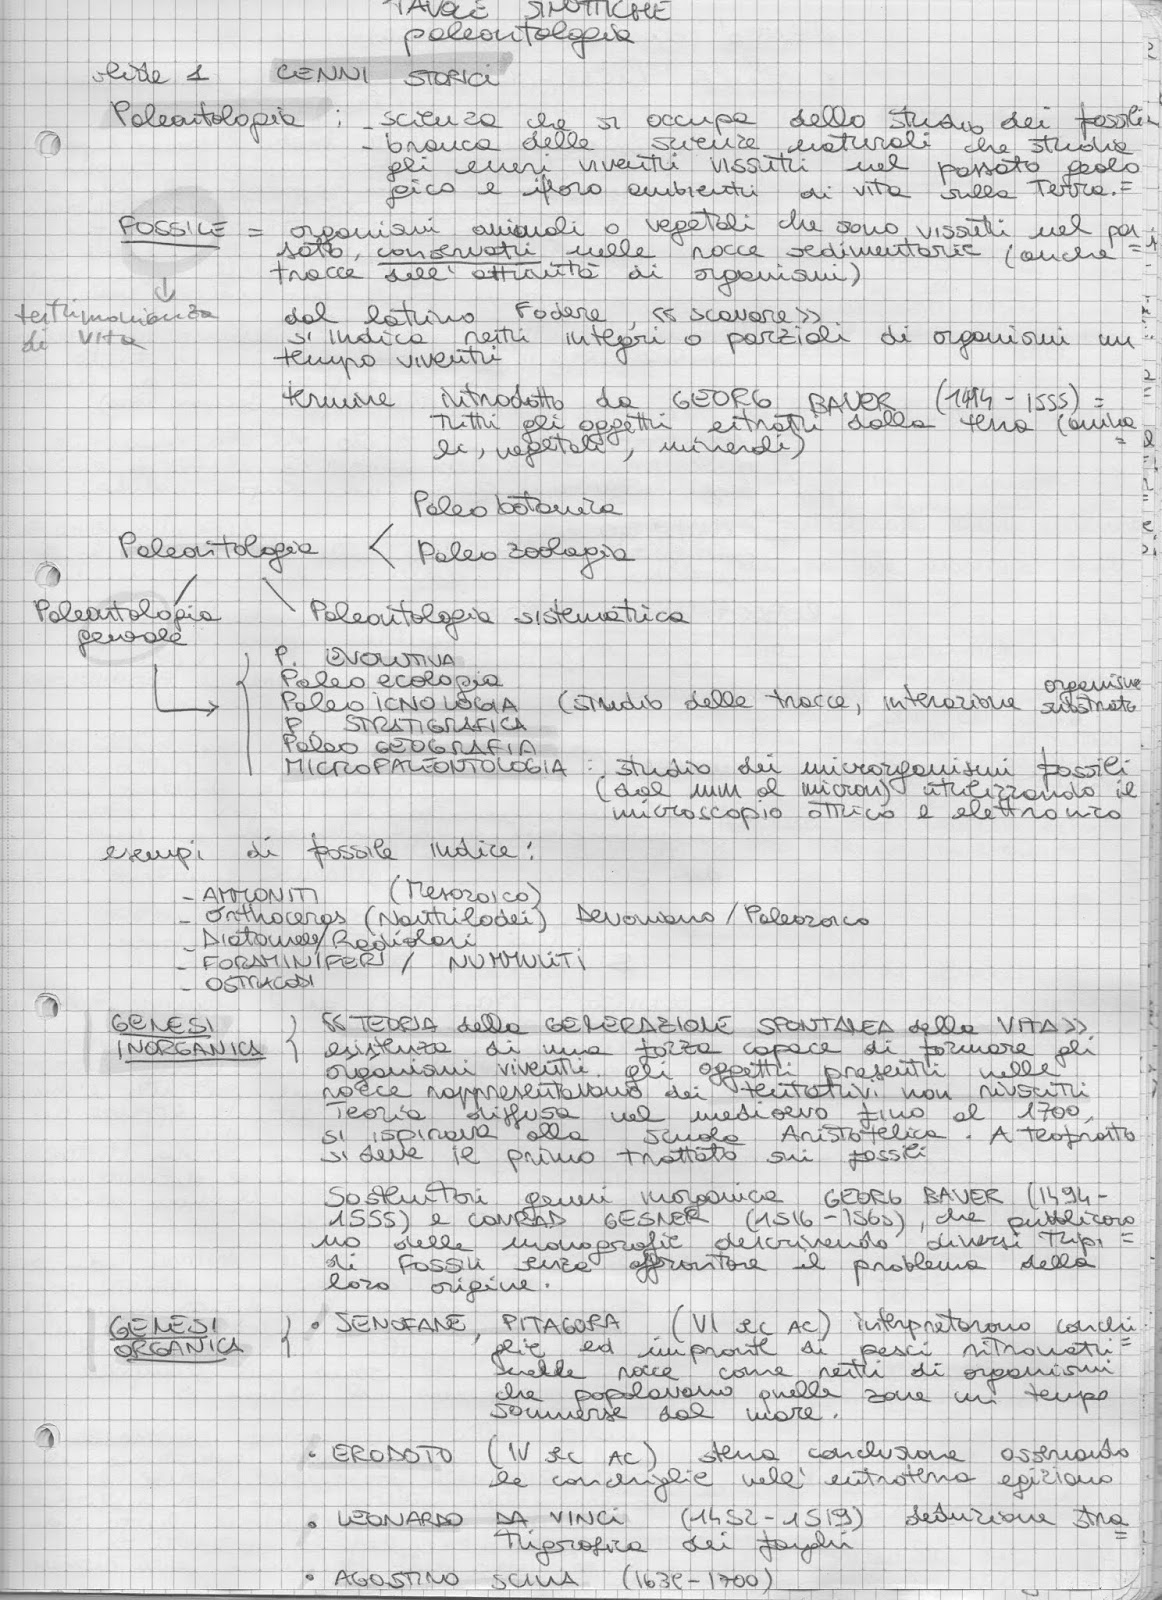 TAVOLE SINOTTICHE
paleontologia
slide 1 CENNI STORICI
Paleontologia : - scienza che si occupa dello studio dei fossili
- branca delle scienze naturali che studia
gli esseri viventi vissuti nel passato geolo
gico e i loro ambienti di vita sulla Terra.=
FOSSILE = organismi animali o vegetali che sono vissuti nel pas
sato, conservati nelle rocce sedimentarie (anche =
tracce dell'attività di organismi)
testimonianza
di vita
dal latino Fodere, «scavare»
si indica resti integri o parziali di organismi un
tempo viventi
termine introdotto da GEORG BAVER (1494-1555) =
tutti gli oggetti estratti dalla terra (anima
=
li, vegetali, minerali)
Paleobotanica
Paleontologia < Paleozoologia
Paleontologia
generale
Paleontologia sistematica
P. EVOLUTIVA
Paleoecologia
Paleo ICNOLOGIA (studio delle tracce, interazione organismi
substrato
P. STRATIGRAFICA
Paleo GEOGRAFIA
MICROPALEONTOLOGIA : studio dei microrganismi fossili
(dal mm al micron) utilizzando il
microscopio ottico e elettronico
esempi di fossile indice:
- AMMONITI (Mesozoico)
- Orthoceras (Nautilodei) Devoniano/Paleozoico
- Diatomee/Radiolari
- FORAMINIFERI / NUMMULITI
- OSTRACODI
GENESI
INORGANICA
«TEORIA della GENERAZIONE SPONTANEA della VITA»
esistenza di una forza capace di formare gli
organismi viventi. gli oggetti presenti nelle
rocce rappresentavano dei tentativi non riusciti
Teoria diffusa nel medioevo fino al 1700,
si ispirava alla scuola Aristotelica. A Teofrasto
si deve il primo trattato sui fossili
Sostenitori genesi inorganica GEORG BAVER (1494-
1555) e CONRAD GESNER (1516-1565), che pubblicaro
no delle monografie descrivendo diversi tipi =
di FOSSILI senza affrontare il problema della
loro origine.
GENESI
ORGANICA
• SENOFANE, PITAGORA (VI sec AC) interpretarono conchi
glie ed impronte di pesci ritrovati =
nelle rocce come resti di organismi
che popolavano quelle zone un tempo
sommerse dal mare.
• ERODOTO (IV sec AC) stessa conclusione osservando
le conchiglie nell'entroterra egiziano
• LEONARDO DA VINCI (1452-1519) deduzione stra
=
tigrafica dei fanghi
• AGOSTINO SCILLA (1639-1700)